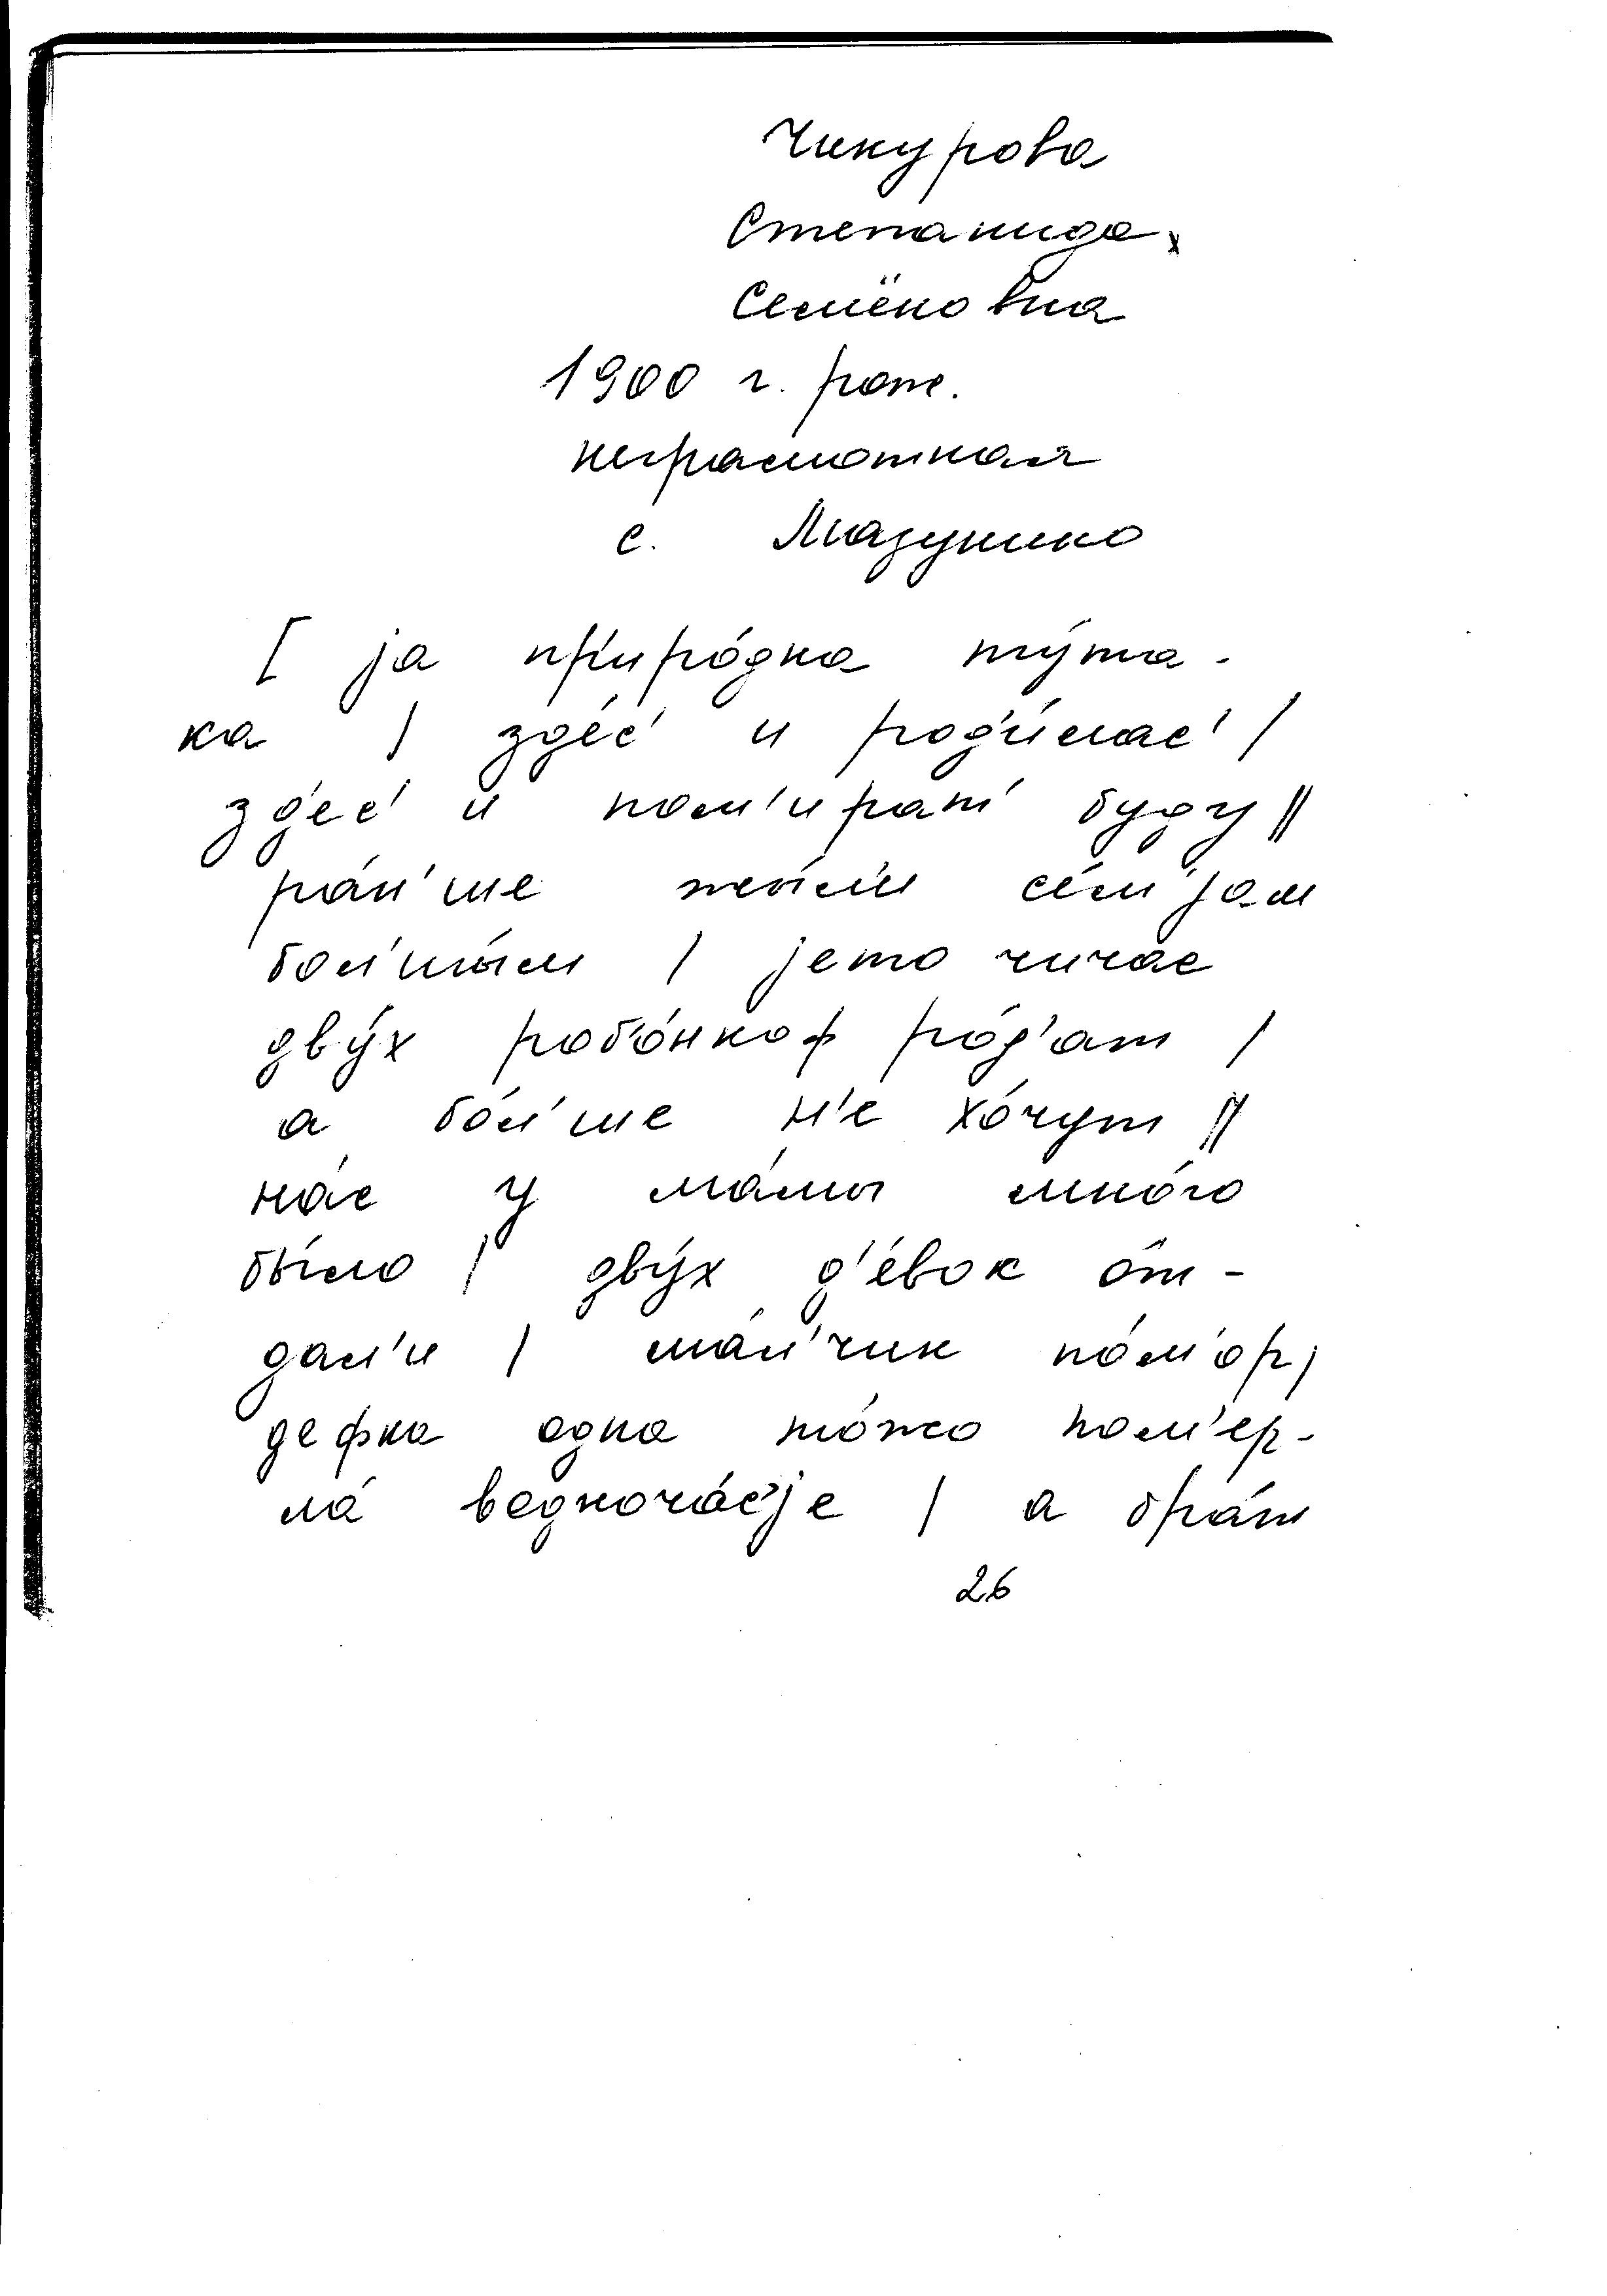 Чикурова
Степанида
Семёновна
1900 г. рож.
неграмотная
с. Мазунино
[ jа пр'иро́дна ту́та-
ка / зде́с' и род'и́лас' /
зд'ес' и пом'ират' буду //
ра́н'ше жы́л'и се́м'jам
бол'шы́м / jето чичас
дву́х роб'о́нкоф ро́д'ат /
а бо́л'ше н'е хо́чут //
на́с у ма́мы мно́го
бы́ло / дву́х д'е́вок о́т-
дал'и / ма́л'чик по́м'ор /
дефка одна то́жо пом'ер-
ла́ водноча́с'jе / а бра́т
26